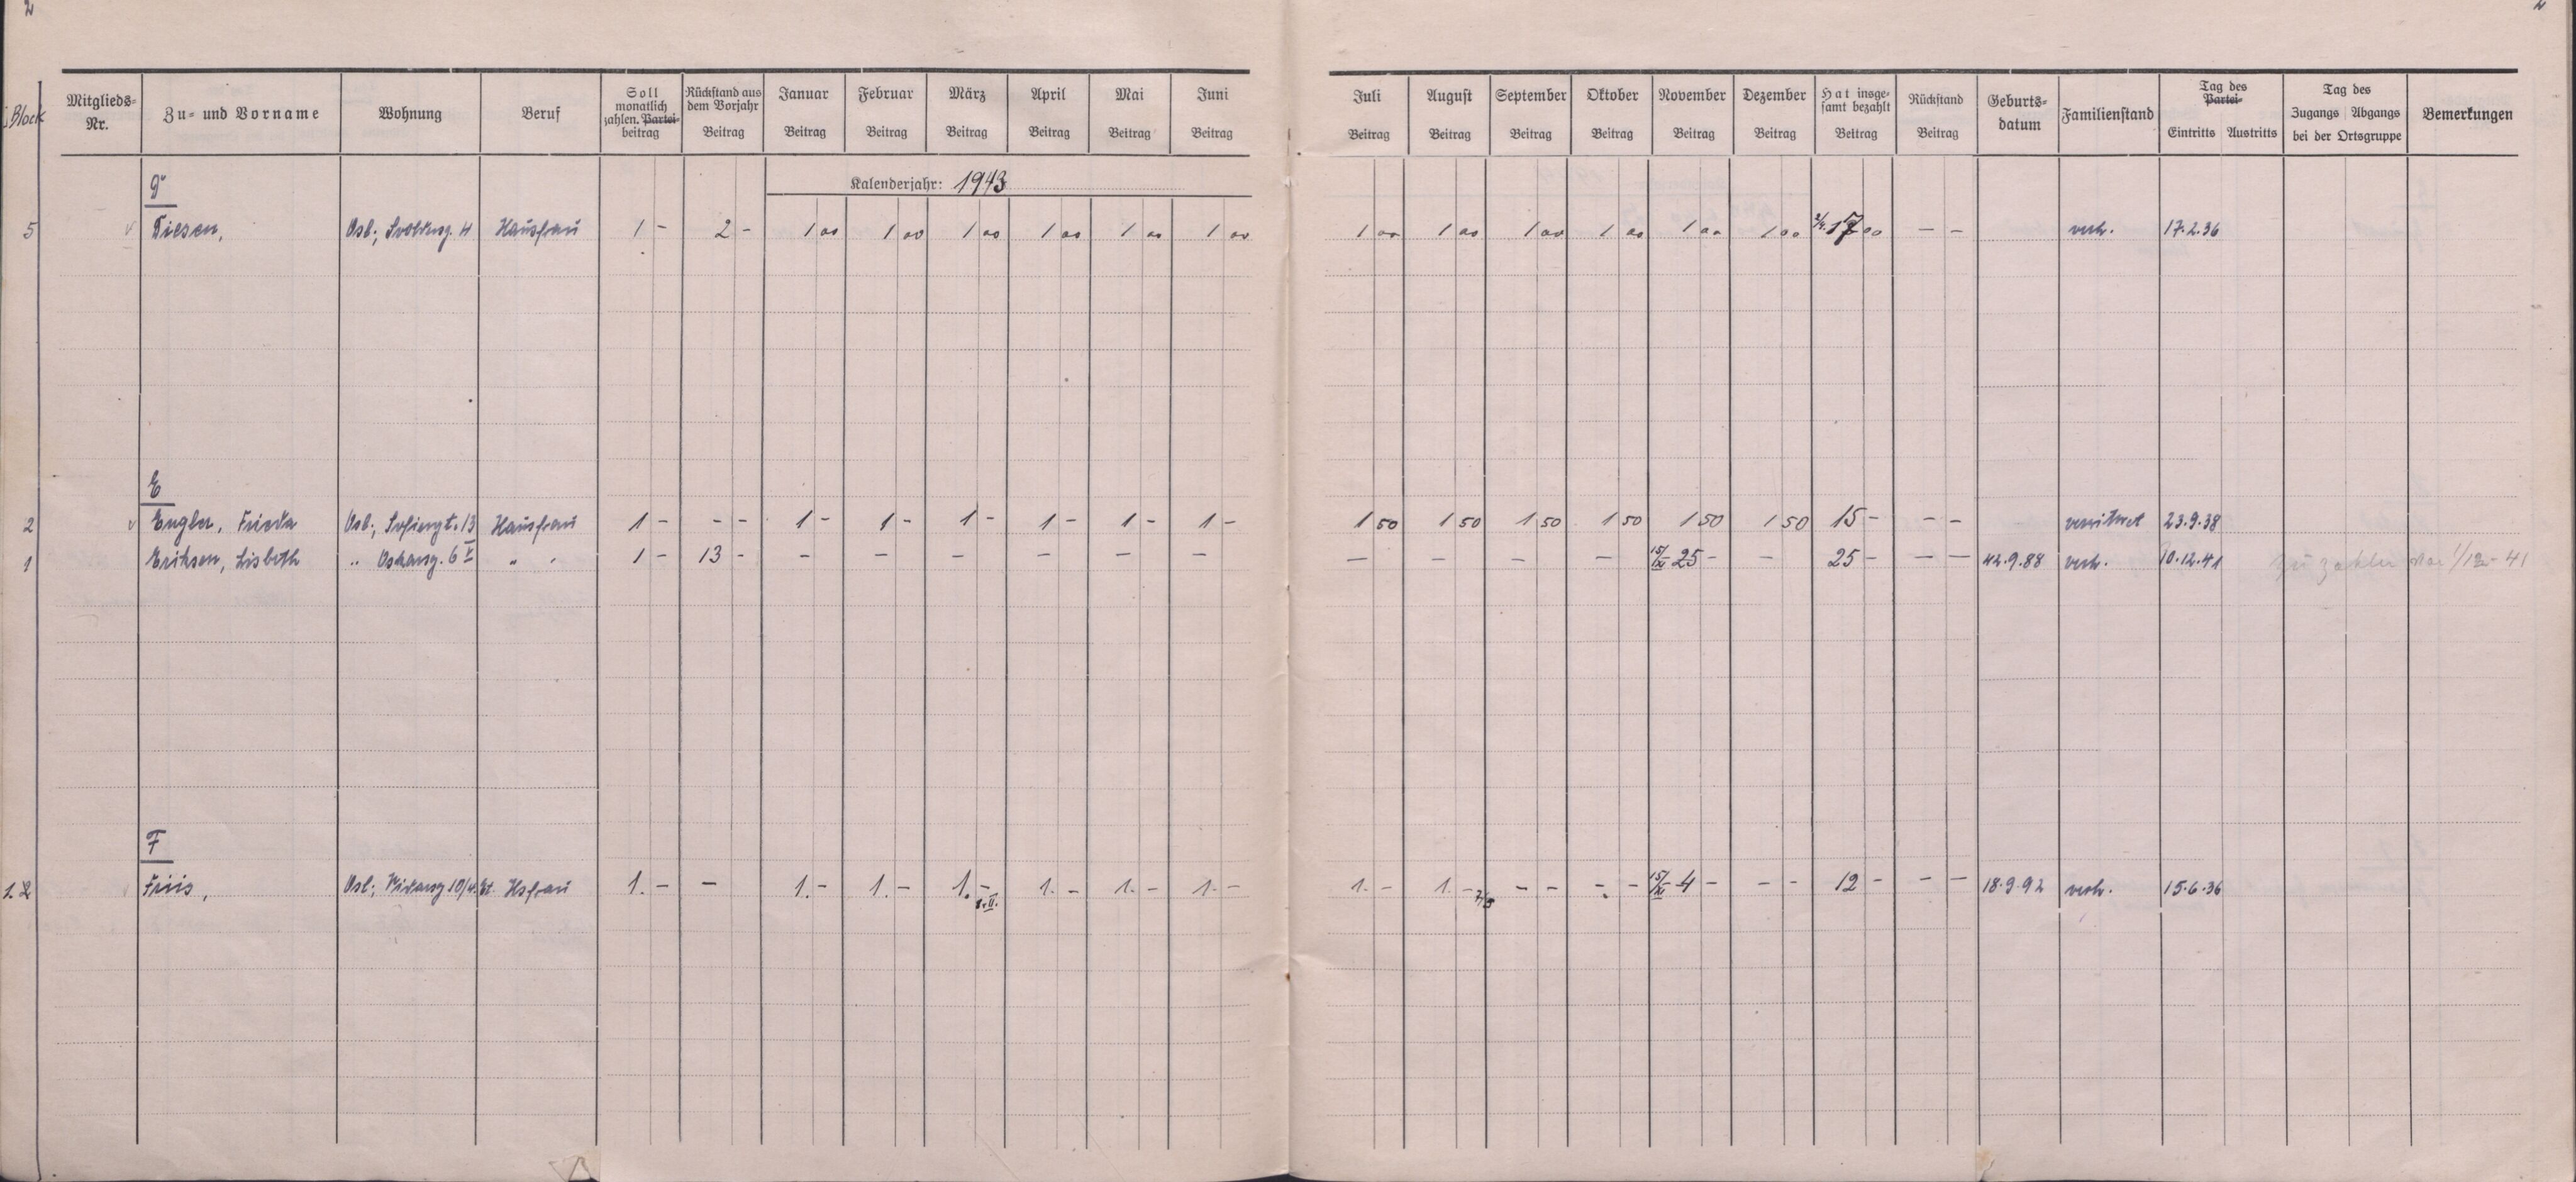 2
Block
Mitglieds-Nr. Zu- und Vorname Wohnung Beruf Soll monatlich zahlen. Partei-beitrag Rückstand aus dem Vorjahr Beitrag Januar Beitrag Februar Beitrag März Beitrag April Beitrag Mai Beitrag Juni Beitrag Juli Beitrag August Beitrag September Beitrag Oktober Beitrag November Beitrag Dezember Beitrag Hat insge-samt bezahlt Beitrag Rückstand Beitrag Geburts-datum Familienstand Tag des Partei- Eintritts Austritts Tag des Zugangs Abgangs bei der Ortsgruppe Bemerkungen
Kalenderjahr: 1943
5 Hausfrau 1 - 2 - 1 00 1 00 1 00 1 00 1 00 1 00 1 00 1 00 1 00 1 00 1 00 1 00 17 00 - - verh. 17.2.36
E
2 Engler, Frieda Osl; 13 Hausfrau 1 - - - 1 - 1 - 1 - 1 - 1 - 1 - 1 50 1 50 1 50 1 50 1 50 1 50 15 - - - verwitwet 23.9.38
1 Eriksen, Lisbeth " Oskarsg. 6 V " " 1 - 13 - - - - - - - - - - - 15/XI 25 - - 25 - - - .9.88 verh. 10.12.41 zu zahlen 1/12-41
F
1.2 Friis, Osl; 10/4. Et. Hsfrau 1. - - 1. - 1. - 1. - 1. - 1. - 1. - 1. - 1. - - - - - 15/XI 4 - - - 12 - - - 18.9.92 verh. 15.6.36